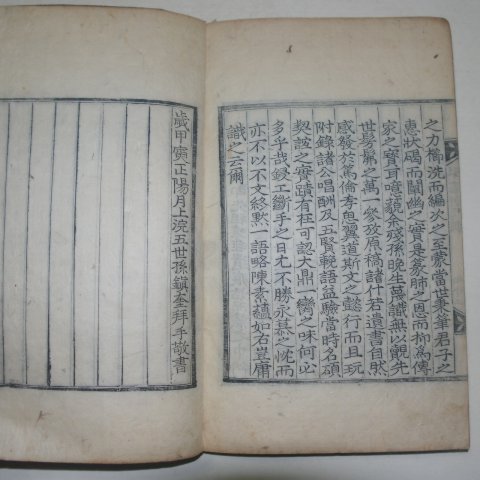 之力僑洗而編次之至蒙當世秉筆君子之
惠狀碣而闡幽之實是蒙肺之恩而抑爲傳
家之寶耳噫藐余殘孫晩生蔑識無以觀先
世髣髴之萬一參攷原稿諸什若遺書自然
感發於篤倫李鬼翼道斯文之懿行而且玩
附錄諸公唱酬及五賢範語益驗當時名碩
契誼之實蹟有在可認大鼎一臠之味何必
多乎哉鋟工斷手之日尤不勝永慕之忱而
亦不以不文終黙一語略陳素蘊如右豈庸
識之云爾
歲甲寅正陽月上浣五世孫鎭奎拜手敬書